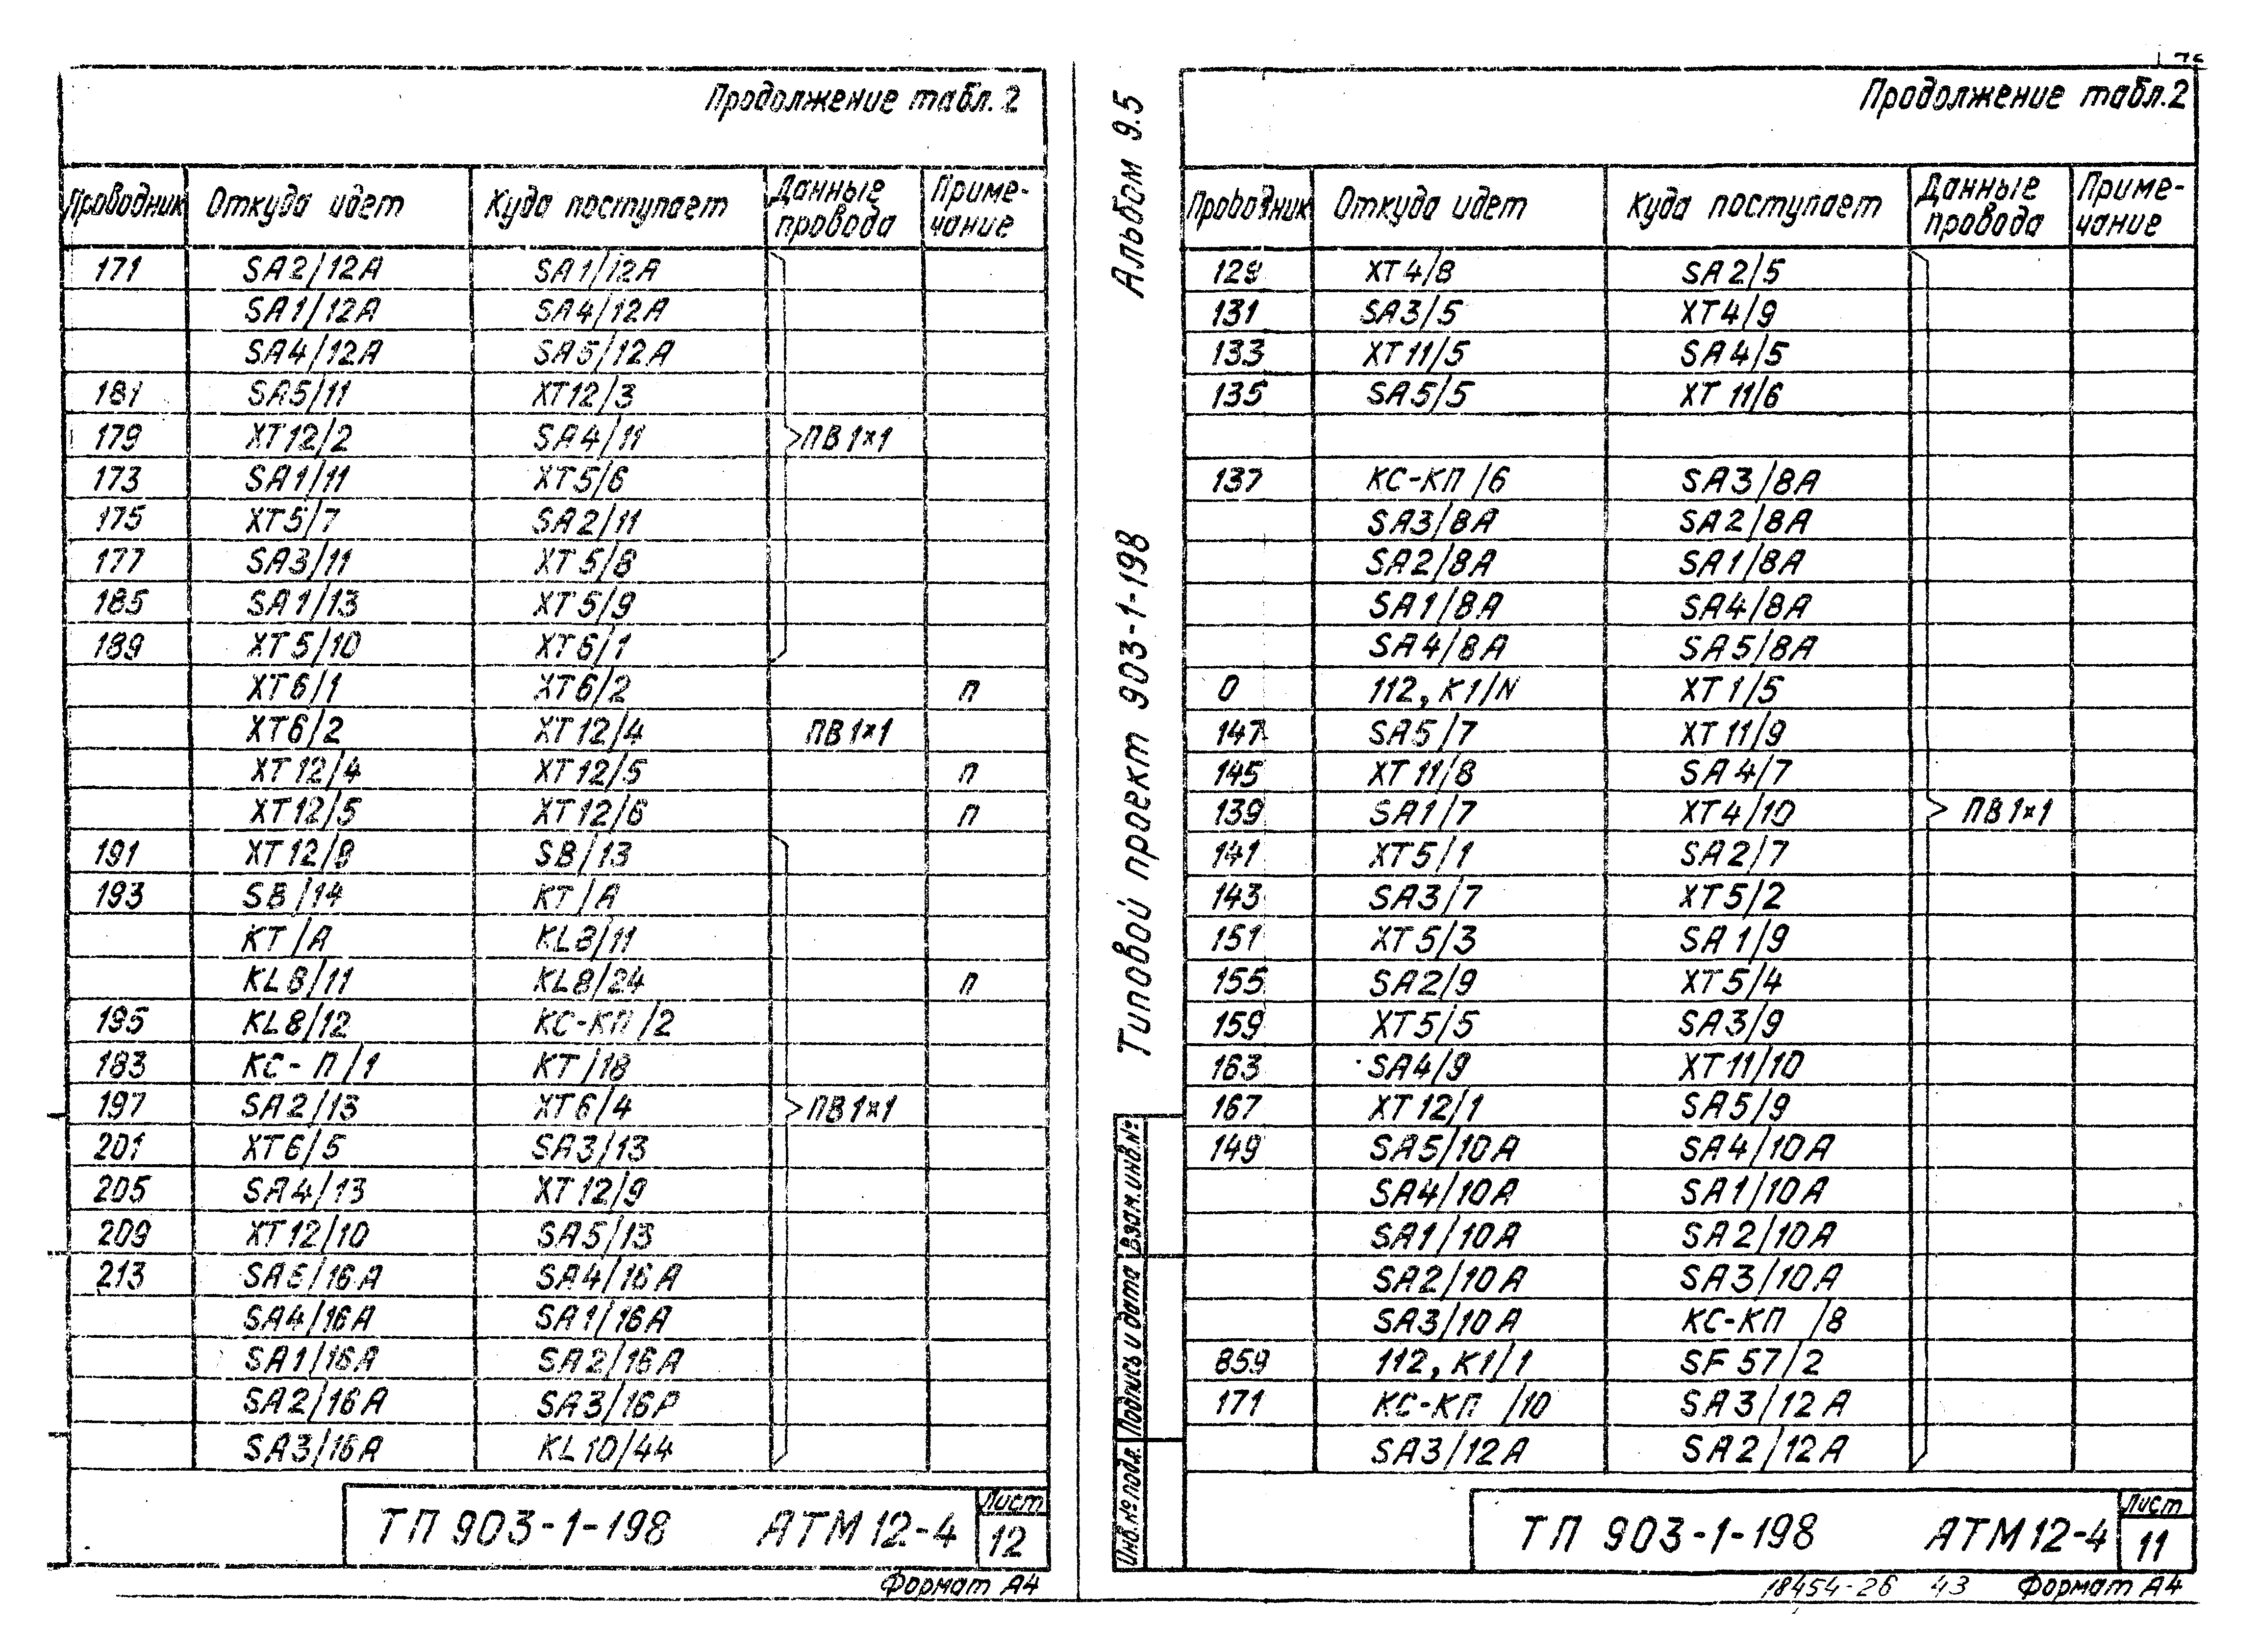 Продолжение табл. 2
Проводник Откуда идет Куда поступает Данные провода Приме-чание
171 SA2/12A SA1/12A
SA1/12A SA4/12A
SA4/12A SA5/12A
181 SA5/11 XT12/3
179 XT12/2 SA4/11 ПВ1×1
173 SA1/11 XT5/6
175 XT5/7 SA2/11
177 SA3/11 XT5/8
185 SA1/13 XT5/9
189 XT5/10 XT6/1
XT6/1 XT6/2 п
XT6/2 XT12/4 ПВ1×1
XT12/4 XT12/5 п
XT12/5 XT12/6 п
191 XT12/8 SB/13
193 SB/14 KT/A
KT/A KL8/11
KL8/11 KL8/24 п
195 KL8/12 КС-КП/2
183 КС-П/1 KT/18
197 SA2/13 XT6/4 ПВ1×1
201 XT6/5 SA3/13
205 SA4/13 XT12/9
209 XT12/10 SA5/13
213 SA5/16A SA4/16A
SA4/16A SA1/16A
SA1/16A SA2/16A
SA2/16A SA3/16A
SA3/16A KL10/44
ТП 903-1-198 АТМ12-4 Лист 12
Формат А4
Альбом 9.5
Типовой проект 903-1-198
Взам.инв.№
Подпись и дата
Инв.№ подл.
Продолжение табл.2
Проводник Откуда идет Куда поступает Данные провода Приме-чание
129 XT4/8 SA2/5
131 SA3/5 XT4/9
133 XT11/5 SA4/5
135 SA5/5 XT11/6
137 КС-КП/6 SA3/8A
SA3/8A SA2/8A
SA2/8A SA1/8A
SA1/8A SA4/8A
SA4/8A SA5/8A
0 112, K1/N XT1/5
147 SA5/7 XT11/9
145 XT11/8 SA4/7
139 SA1/7 XT4/10 ПВ1×1
141 XT5/1 SA2/7
143 SA3/7 XT5/2
151 XT5/3 SA1/9
155 SA2/9 XT5/4
159 XT5/5 SA3/9
163 SA4/9 XT11/10
167 XT12/1 SA5/9
149 SA5/10A SA4/10A
SA4/10A SA1/10A
SA1/10A SA2/10A
SA2/10A SA3/10A
SA3/10A КС-КП /8
859 112, K1/1 SF57/2
171 КС-КП /10 SA3/12A
SA3/12A SA2/12A
ТП 903-1-198 АТМ12-4 Лист 11
18454-26 43 Формат А4